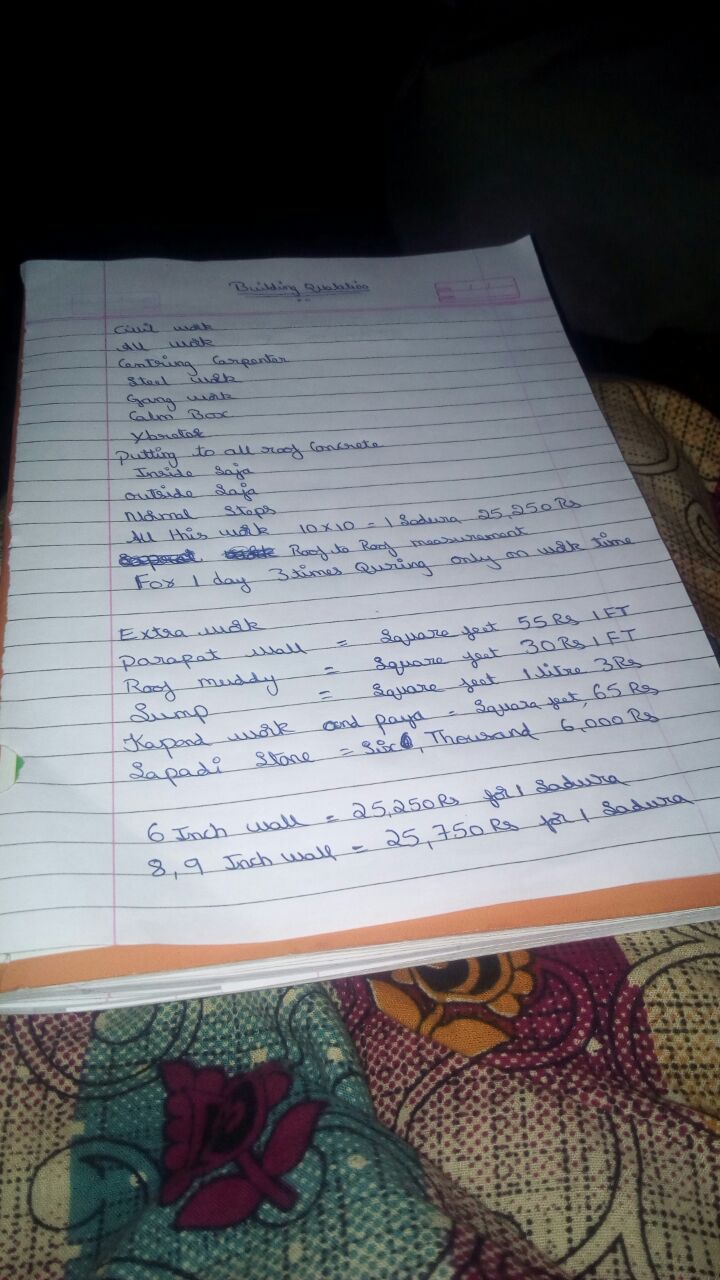 Building Quotation
Civil work
All work
Centring Carpenter
Steel work
Gang work
Calm Box
Ybrator
Putting to all roof Concrete
Inside Saja
outside Saja
Normal Steps
All this work 10x10 = 1 Sadura 25,250 Rs
Roof to Roof measurement
For 1 day 3 times Quring only on work time
Extra work
Parapat wall = Square feet 55 Rs 1 FT
Roof muddy = Square feet 30 Rs 1 FT
Sump = Square feet 1 litre 3 Rs
Kapond work and paya = Square feet, 65 Rs
Sapadi Stone = Six, Thousand 6,000 Rs
6 Inch wall = 25,250 Rs for 1 Sadura
8, 9 Inch wall = 25,750 Rs for 1 Sadura